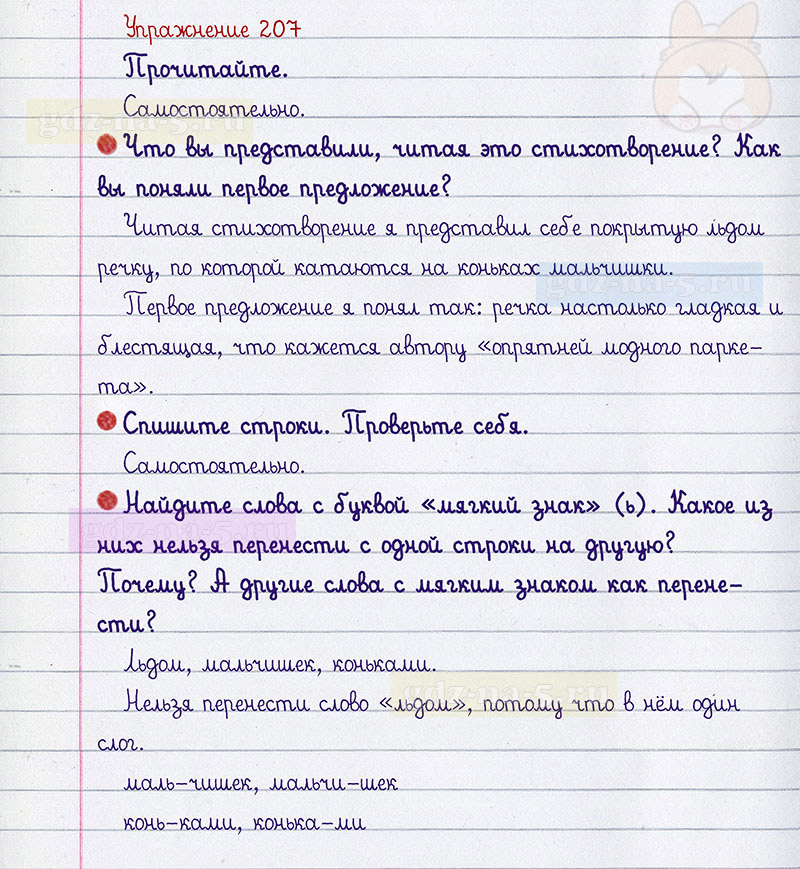 Упражнение 207
Прочитайте.
Самостоятельно.
gdz-na-5.ru
Что вы представили, читая это стихотворение? Как
вы поняли первое предложение?
Читая стихотворение я представил себе покрытую льдом
речку, по которой катаются на коньках мальчишки.
gdz-na-5.ru
Первое предложение я понял так: речка настолько гладкая и
блестящая, что кажется автору «опрятней модного парке-
та».
Спишите строки. Проверьте себя.
Самостоятельно.
Найдите слова с буквой «мягкий знак» (ь). Какое из
gdz-na-5.ru
них нельзя перенести с одной строки на другую?
Почему? А другие слова с мягким знаком как перене-
сти?
Льдом, мальчишек, коньками.
gdz-na-5.ru
Нельзя перенести слово «льдом», потому что в нём один
слог.
маль-чишек, мальчи-шек
конь-ками, конька-ми